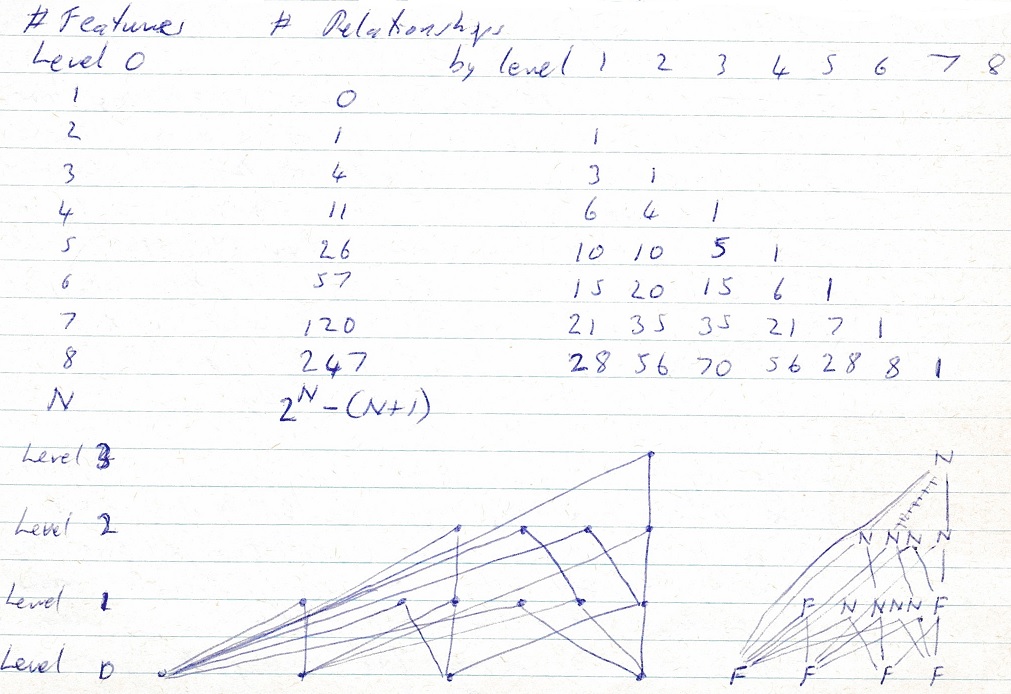 # Features # Relationships
Level 0 by level 1 2 3 4 5 6 7 8
1 0
2 1 1
3 4 3 1
4 11 6 4 1
5 26 10 10 5 1
6 57 15 20 15 6 1
7 120 21 35 35 21 7 1
8 247 28 56 70 56 28 8 1
N 2^N - (N+1)
Level 3 N
Level 2 N N N N
Level 1 F N N N N F
Level 0 F F F F